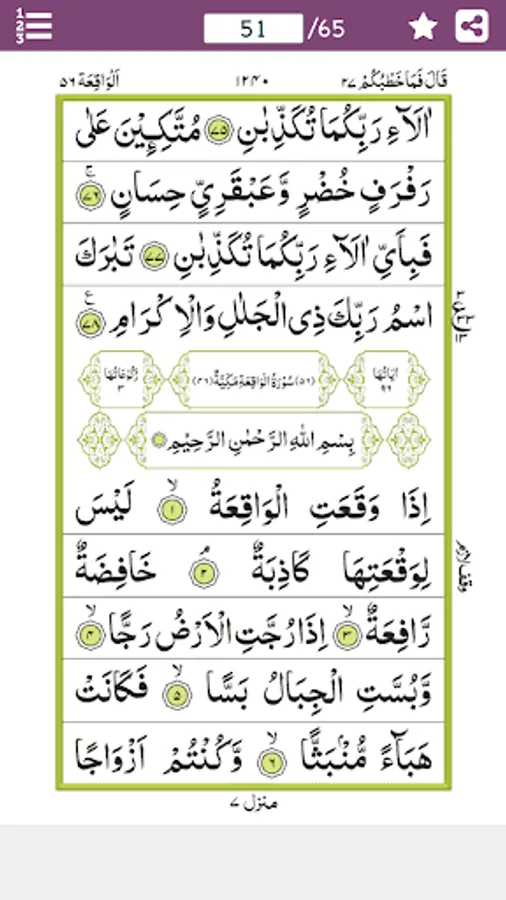 1 2 3
51 /65
اَلْوَاقِعَة ٥٦
١٢٤٠
قَالَ فَمَا خَطْبُكُمْ ٢٧
اٰلَآءِ رَبِّكُمَا تُكَذِّبٰنِ ۷۵ مُتَّكِـِٕيْنَ عَلٰى
رَفْرَفٍ خُضْرٍ وَّعَبْقَرِيٍّ حِسَانٍ ۚ ۷۶
فَبِاَيِّ اٰلَآءِ رَبِّكُمَا تُكَذِّبٰنِ ۷۷ تَبٰرَكَ
اسْمُ رَبِّكَ ذِى الْجَلٰلِ وَالْاِكْرَامِ ۷۸ ع
اٰيَاتُهَا ٩٦
(٥٦) سُوْرَةُ الْوَاقِعَةِ مَكِّيَّةٌ (٤٦)
رُكُوْعَاتُهَا ٣
بِسْمِ اللّٰهِ الرَّحْمٰنِ الرَّحِيْمِ
اِذَا وَقَعَتِ الْوَاقِعَةُ ۙ ١ لَيْسَ
لِوَقْعَتِهَا كَاذِبَةٌ ۘ ٢ خَافِضَةٌ
رَّافِعَةٌ ۙ ٣ اِذَا رُجَّتِ الْاَرْضُ رَجًّا ۙ ۴
وَّبُسَّتِ الْجِبَالُ بَسًّا ۙ ۵ فَكَانَتْ
هَبَآءً مُّنْۢبَثًّا ۙ ٦ وَّكُنْتُمْ اَزْوَاجًا
منزل ٧